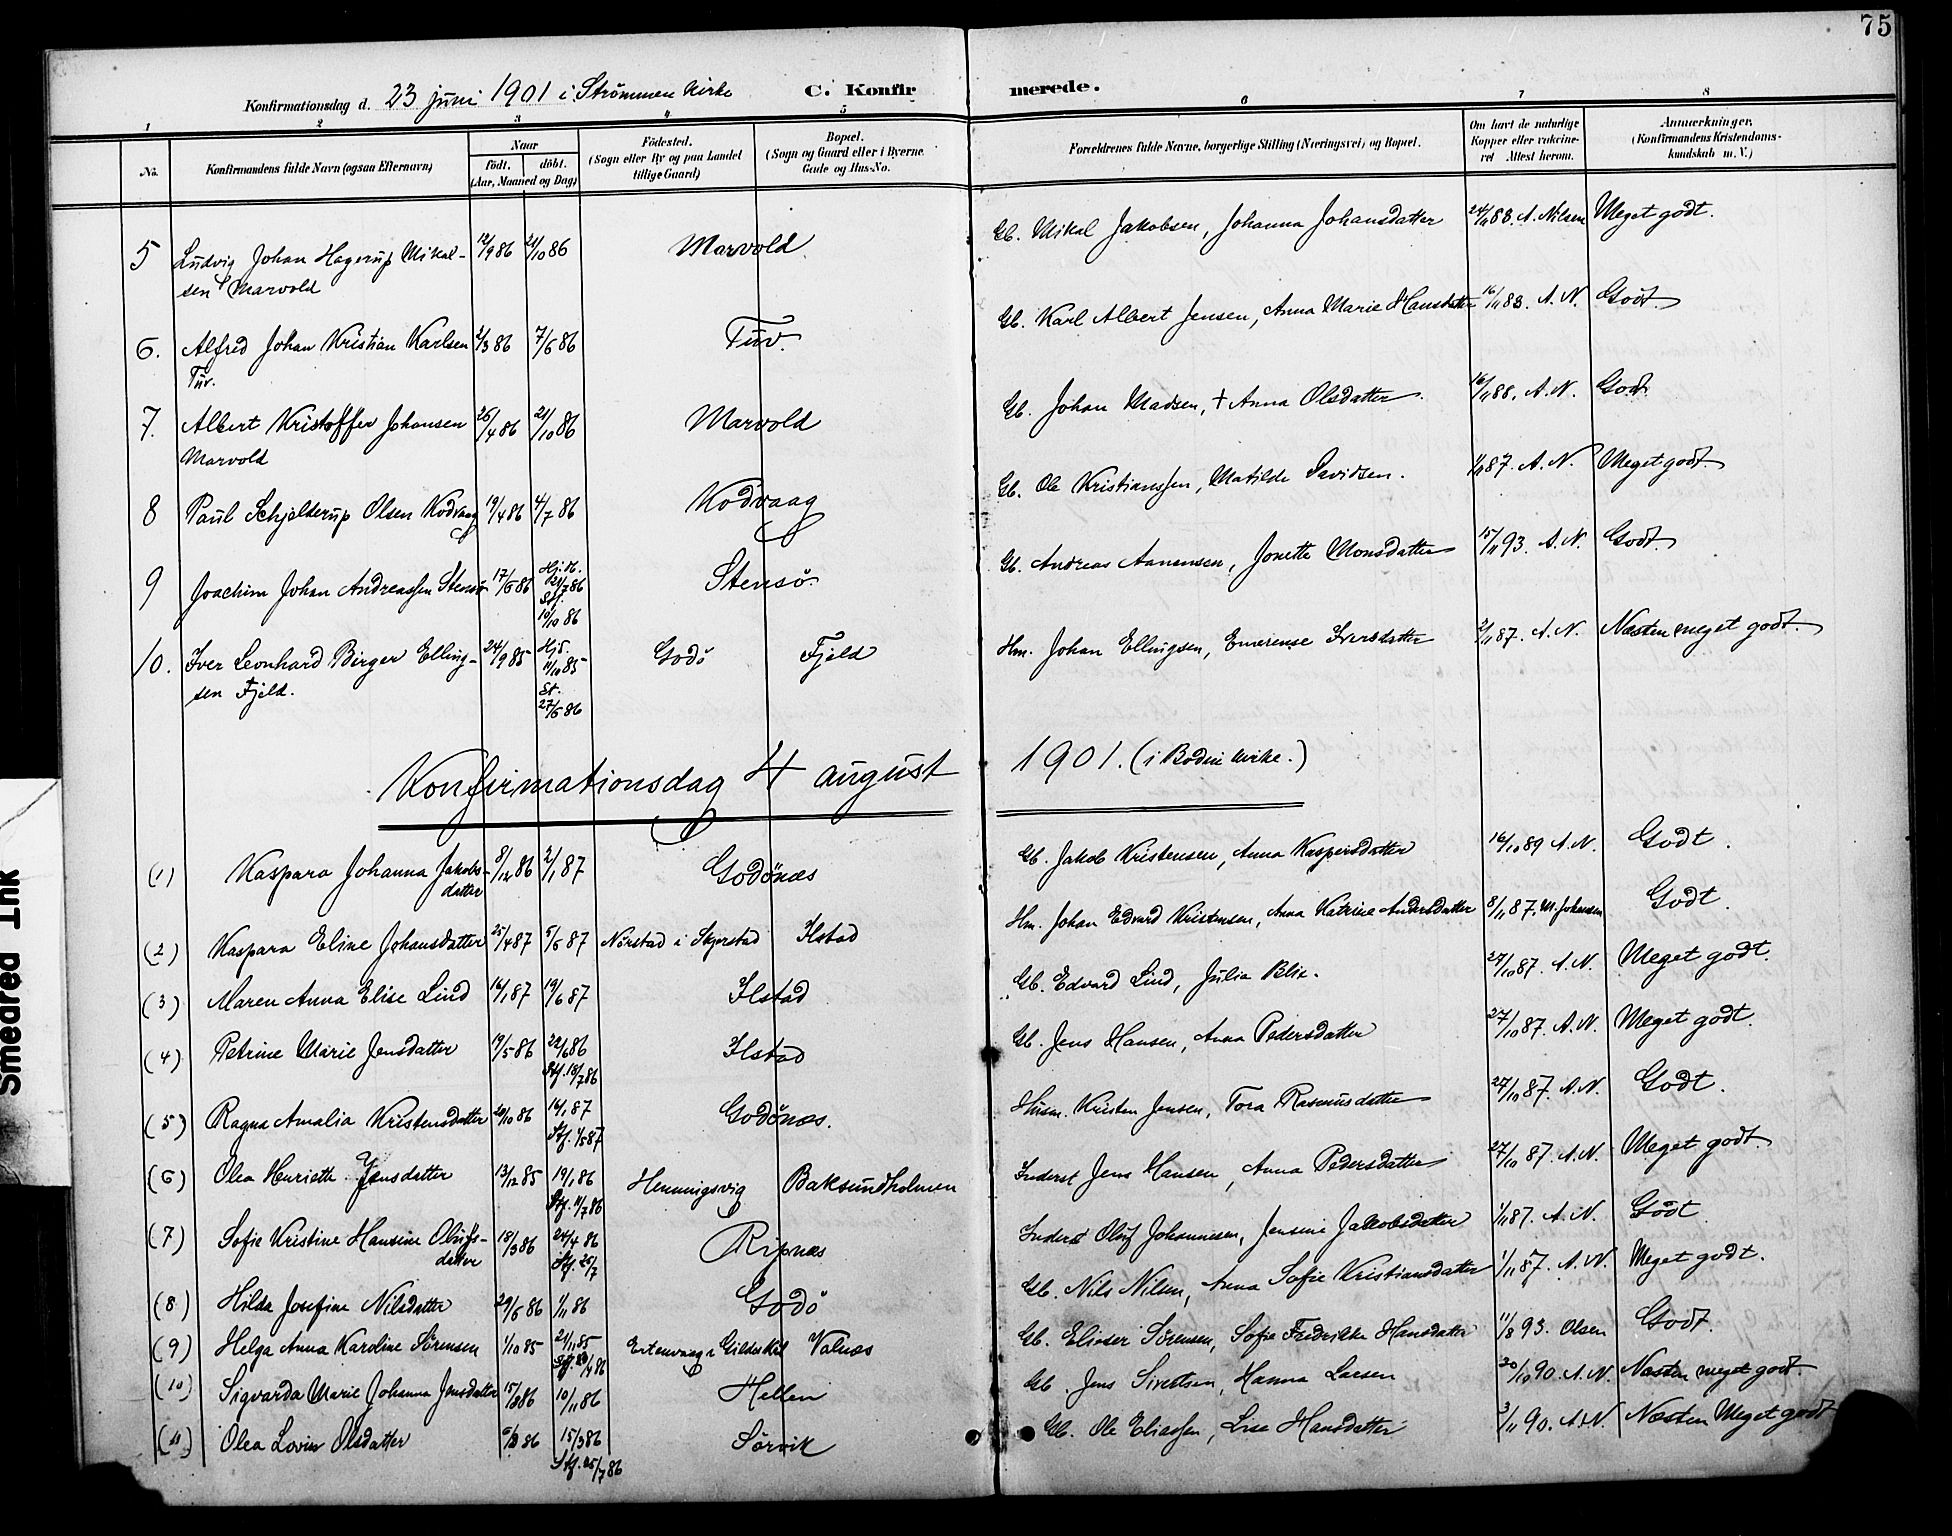 75
Konfirmationsdag d. 23 juni 1901 i Strömmen Kirke C. Konfirmerede.
1 2 3 4 5 6 7 8
No.
Konfirmandens fulde Navn (ogsaa Efternavn)
Naar
født. døbt.
(Aar, Maaned og Dag)
Fødested.
(Sogn eller By og paa Landet
tillige Gaard)
Bopæl.
(Sogn og Gaard eller i Byerne
Gade og Hus-No.
Forældrenes fulde Navne, borgerlige Stilling (Næringsvei) og Bopæl.
Om havt de naturlige
Kopper eller vakcine-
ret Attest herom.
Anmærkninger.
(Konfirmandens Kristendoms-
kundskab m. V.)
5 Ludvig Johan Hagerup Mikal- 12/9 86 21/10 86 Marvold Gb. Mikal Jakobsen, Johanna Johansdatter A. Nilsen Meget godt.
sen Marvold
6. Alfred Johan Kristian Karlsen 2/3 86 7/6 86 Tuv. Gb. Karl Albert Jensen, Anna Marie Hansdatter 16/11 83. A. N. Godt
Tuv.
7. Albert Kristoffer Johansen 26/4 86 21/10 86 Marvold Gb. Johan Madsen, + Anna Olsdatter 16/11 88. A. N. Godt
Marvold
8 Paul Schjelderup Olsen Kodvaag 19/4 86 4/7 86 Kodvaag Gb. Ole Kristianssen, Matilde Davidsen. 1/11 87. A. N. Meget godt.
9 Joachim Johan Andreassen Stensö 17/5 86 Hj. d. 21/7 86 Stensö. Gb. Andreas Anansen, Jonette Monsdatter 15/11 93. A. N. Godt.
Stf.
10/10 86
10. Iver Leonhard Birger Elling- 24/9 85 Hj. 11/10 85 Godö Fjeld Hm. Johan Ellingsen, Emerense Iversdatter 2/11 87. A. N. Næsten meget godt.
sen Fjeld. St.
27/6 86
Konfirmationsdag 4 august 1901. (i Bodin kirke.)
(1) Kaspara Johanna Jakobs- 8/12 86 2/1 87 Godönæs Gb. Jakob Kristensen, Anna Kaspersdatter 16/10 89 A. N. Godt.
datter
(2) Kaspara Eline Johansdatter 25/4 87 5/6 87 Nörstad i Skjerstad Ilstad Hm. Johan Edvard Kristensen, Anna Katrine Andersdatter 8/11 87. M. Johansen Godt.
(3) Maren Anna Elise Lind 16/1 87 19/6 87 Ilstad Gb. Edvard Lind, Julia Blix. 27/10 87. A. N. Meget godt.
(4) Petrine Marie Jensdatter 19/5 86 22/6 86 Ilstad Gb. Jens Hansen, Anna Pedersdatter 27/10 87. A. N. Meget godt.
Stf. 18/7 86
(5) Ragna Amalia Kristensdatter 20/10 86 16/1 87 Godönæs. Husm. Kristen Jensen, Tora Rasmusdatter 27/10 87. A. N. Godt.
Stf. 1/5 87
(6) Olea Henriette Jensdatter 13/12 85 19/1 86 Henningsvig Baksundholmen Inderst Jens Hansen, Anna Pedersdatter 27/10 87. A. N. Meget godt.
Stf. 11/7 86
(7) Sofie Kristine Hansine Olufs- 18/3 86 24/4 86 Ripnæs Inderst Oluf Johannesen, Jensine Jakobsdatter 1/11 87. A. N. Godt
datter Stf. 25/7
(8) Hilda Josefine Nilsdatter 29/6 86 1/11 86 Godö Gb. Nils Nilsen, Anna Sofie Kristiansdatter 1/11 87. A. N. Meget godt.
(9) Helga Anna Karoline Sörensen 1/10 85 21/11 85 Ertenvaag i Gildeskål Valnæs Gb. Elieser Sörensen, Sofie Fredrikke Hansdatter 11/8 93. Olsen Godt.
(10) Sigvarda Marie Johanna Jensdatter 15/3 86 10/11 86 Hellen Gb. Jens Sivertsen, Hanna Larsen 30/10 90. A. N. Næsten meget godt.
(11) Olea Lovise Olsdatter 86 15/3 86 Sörvik Gb. Ole Eliassen, Lise Hansdatter 3/11 90. A. N. Næsten Meget godt
Stf. 25/7 86
Smedred Ink